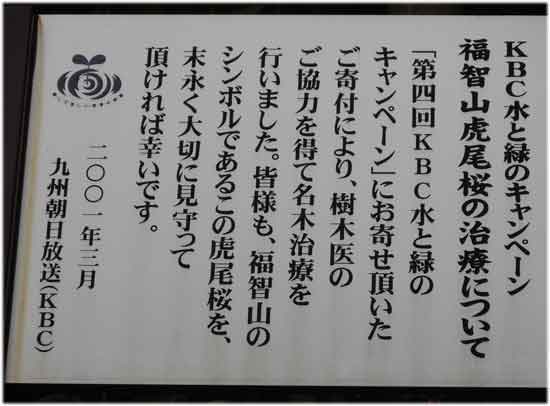 KBC水と緑のキャンペーン
福智山虎尾桜の治療について
「第四回KBC水と緑の
キャンペーン」にお寄せ頂いた
ご寄付により、樹木医の
ご協力を得て名木治療を
行いました。皆様も、福智山の
シンボルであるこの虎尾桜を、
末永く大切に見守って
頂ければ幸いです。
二〇〇一年三月
九州朝日放送(KBC)